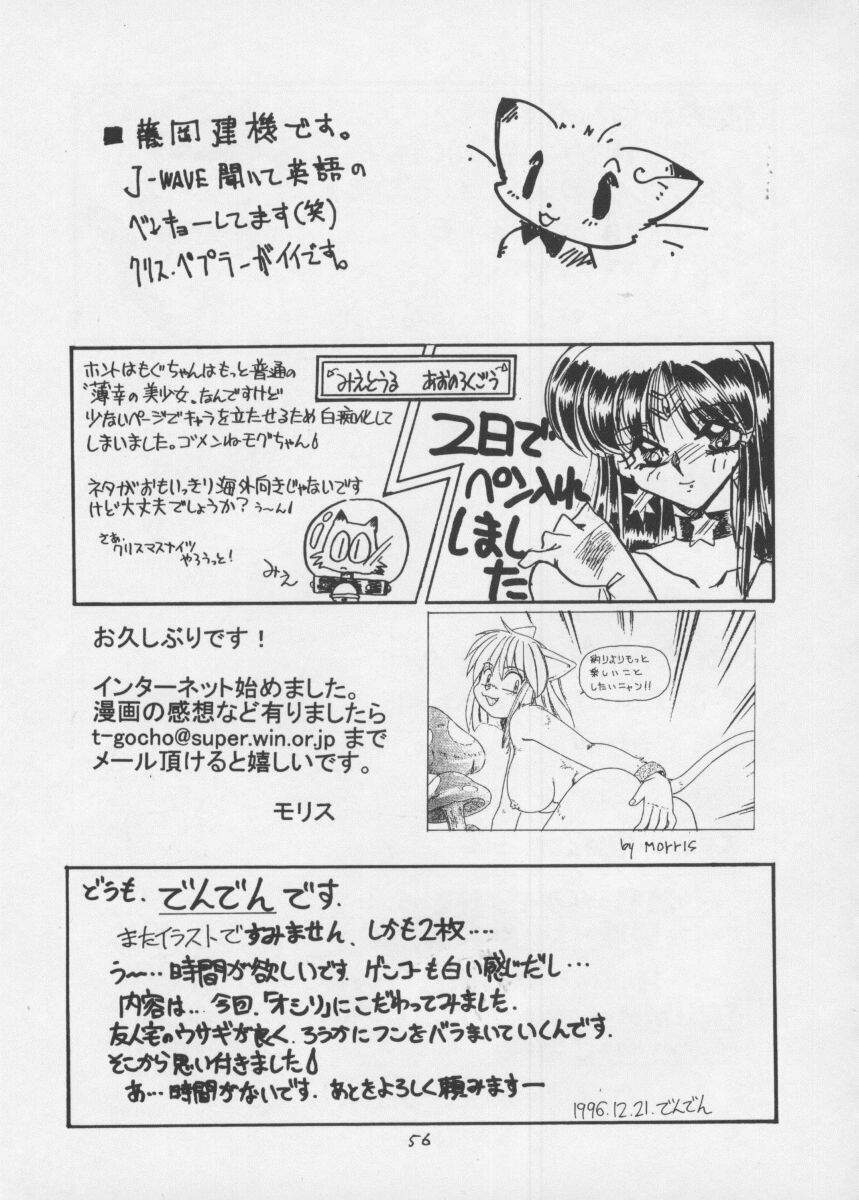 ■藤岡建機です。
J-WAVE聞いて英語の
ベンキョーしてます(笑)
クリス・ペプラーがイイです。
ホントはもぐちゃんはもっと普通の
“薄幸の美少女„なんですけど
少ないページでキャラを立たせるため白痴化して
しまいました。ゴメンねモグちゃん
ネタがおもいっきり海外向きじゃないです
けど大丈夫でしょうか？う〜ん
さぁ、
クリスマスナイツ
やろうっと！
みえ
みえとうる あおのろくごう
2日で
ペン入れ
しまし
た
お久しぶりです！
インターネット始めました。
漫画の感想など有りましたら
t-gocho@super.win.or.jp まで
メール頂けると嬉しいです。
モリス
釣りよりもっと
楽しいこと
したいニャン!!
by Morris
どうも、でんでんです.
またイラストですみません、しかも2枚‥‥
う〜‥時間が欲しいです.ゲンコーも白い感じだし…
内容は… 今回、「オシリ」にこだわってみました.
友人宅のウサギが良く、ろうかにフンをバラまいていくんです.
そこから思い付きました
あ…時間がないです. あとをよろしく頼みますー
1996.12.21.でんでん
56